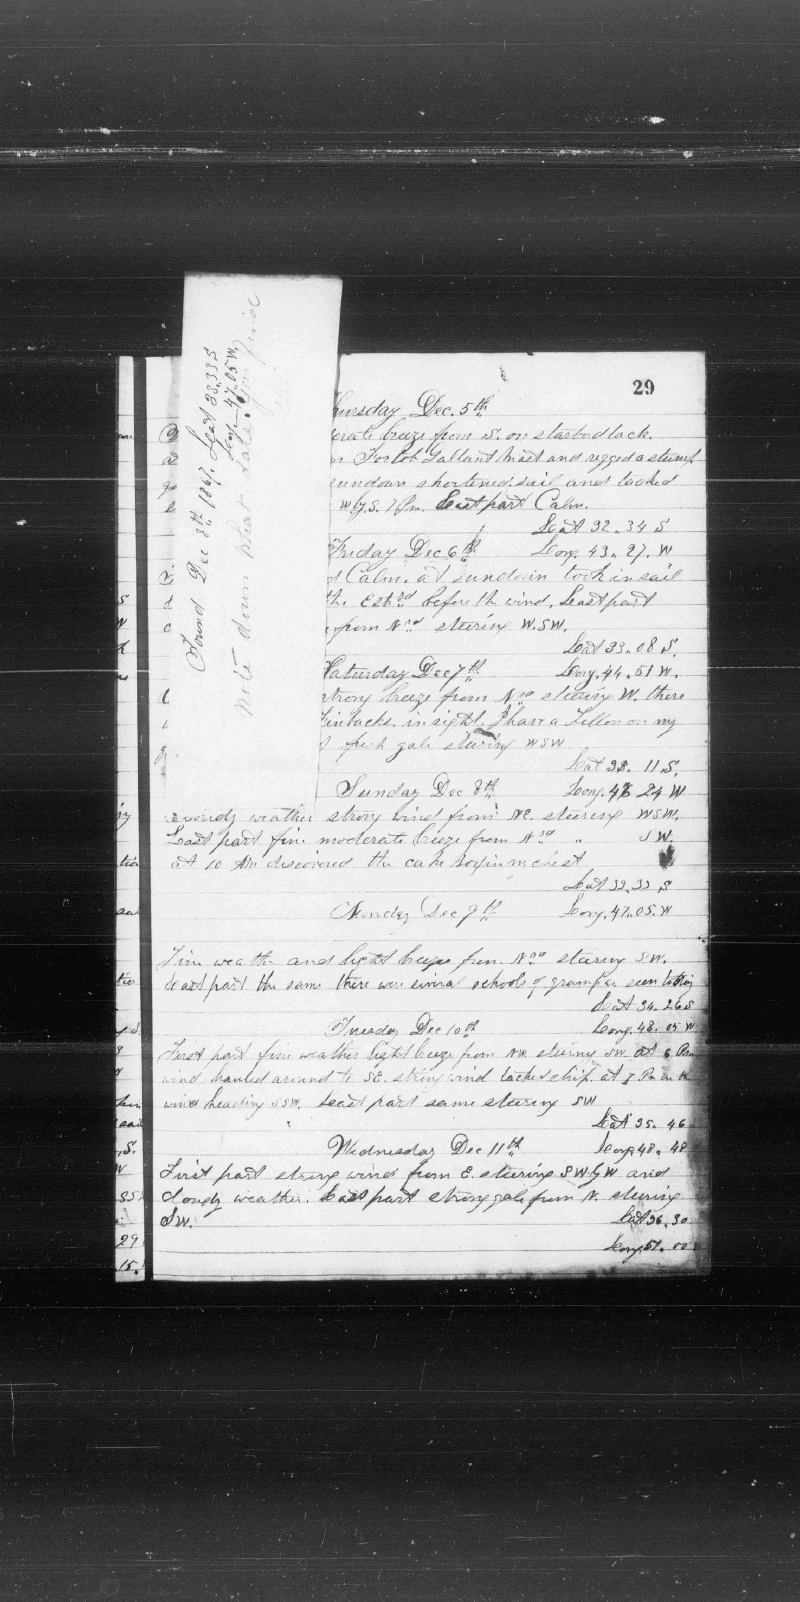 29
Found Dec 8th 1867. Leat 33.33 S
Long. 47.05 W.
note down what date you find
the
hursday Dec. 5th
erate breeze from S. on starbod tack.
Gallant Mast and regged a stump
sundown shortened sail and tacked
W.S. 7 Pm. Last part Calm.
Leat 32. 34 S
Friday Dec 6th Long. 43. 27. W
Calm. at sundown took in sail
the before the wind, Last part
from Nrd steering W.SW.
Leat 33. 08 S.
Saturday Dec 7th Long. 44. 51 W.
strong breeze from steering W. there
Finbacks in sight. I have a on my
fresh gale steering WSW
Leat 33. 11 S.
Sunday Dec 8th Long. 46 24 W
weather strong wind from NE. steering WSW.
Last part fine moderate breeze from Nrd " SW.
at 10 Am discovered the cake box in m chest
Leat 33.33 S
Monday Dec 9th Long. 47.05. W
Fine weather and light breeze from Nrd steering SW.
Last part the same there were several schools of grampus seen
Leat 34. 26 S
Tuesday Dec 10th Long. 48. 05 W
First part fine weather light breeze from NW. steering SW. at 6 Pm
wind hauled around to SE. strong wind tacked ship. at 8 Pm
wind heading SSW. Least part same steering SW
Leat 35. 46
Wednesday Dec 11th Long. 48. 48
First part strong wind from E. steering SW.by W and
Cloudy weather. Last part strong gale from N. steering
SW. Leat 36. 30
Long. 51. 00